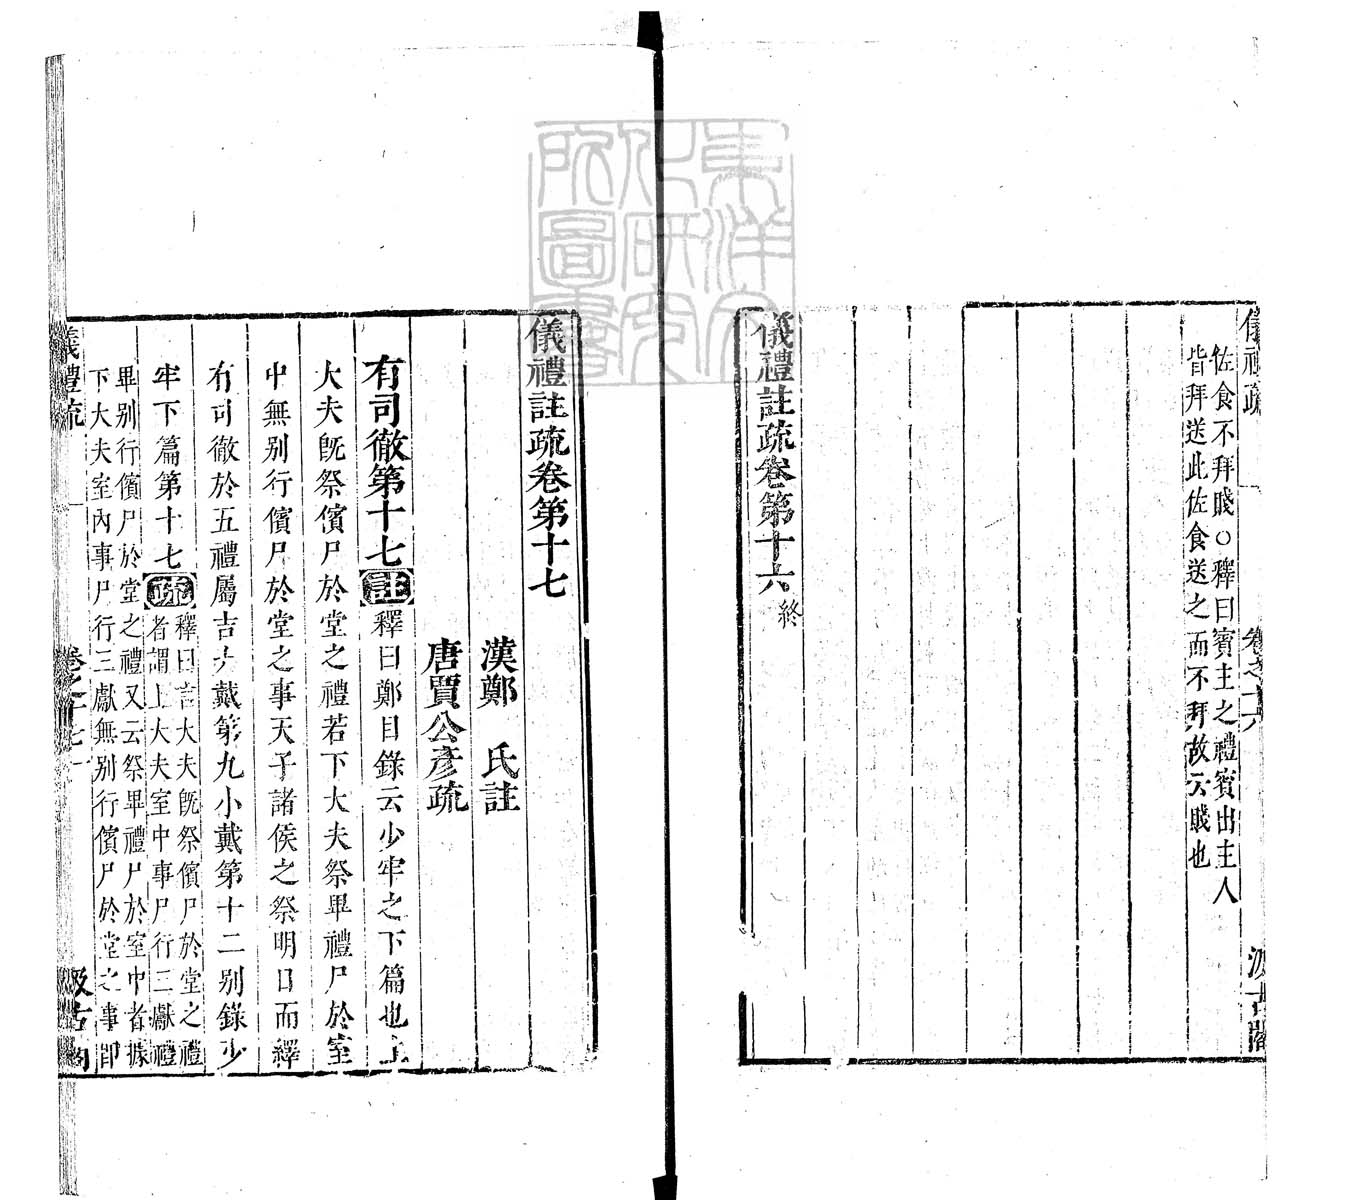 儀禮疏 卷之十六 汲古閣
佐食不拜賤○釋曰賓主之禮賓出主人
皆拜送此佐食送之而不拜故云賤也
儀禮註疏卷第十六終
儀禮註疏卷第十七
漢鄭 氏註
唐賈公彥疏
有司徹第十七註釋曰鄭目錄云少牢之下篇也上
大夫旣祭儐尸於堂之禮若下大夫祭畢禮尸於室
中無别行儐尸於堂之事天子諸侯之祭明日而繹
有司徹於五禮屬吉大戴第九小戴第十二别錄少
牢下篇第十七疏釋曰言大夫旣祭儐尸於堂之禮
者謂上大夫室中事尸行三獻禮
畢别行儐尸於堂之禮又云祭畢禮尸於室中者據
下大夫室內事尸行三獻無别行儐尸於堂之事卽
儀禮疏 一 卷之十七 汲古閣
東洋文化研究所圖書